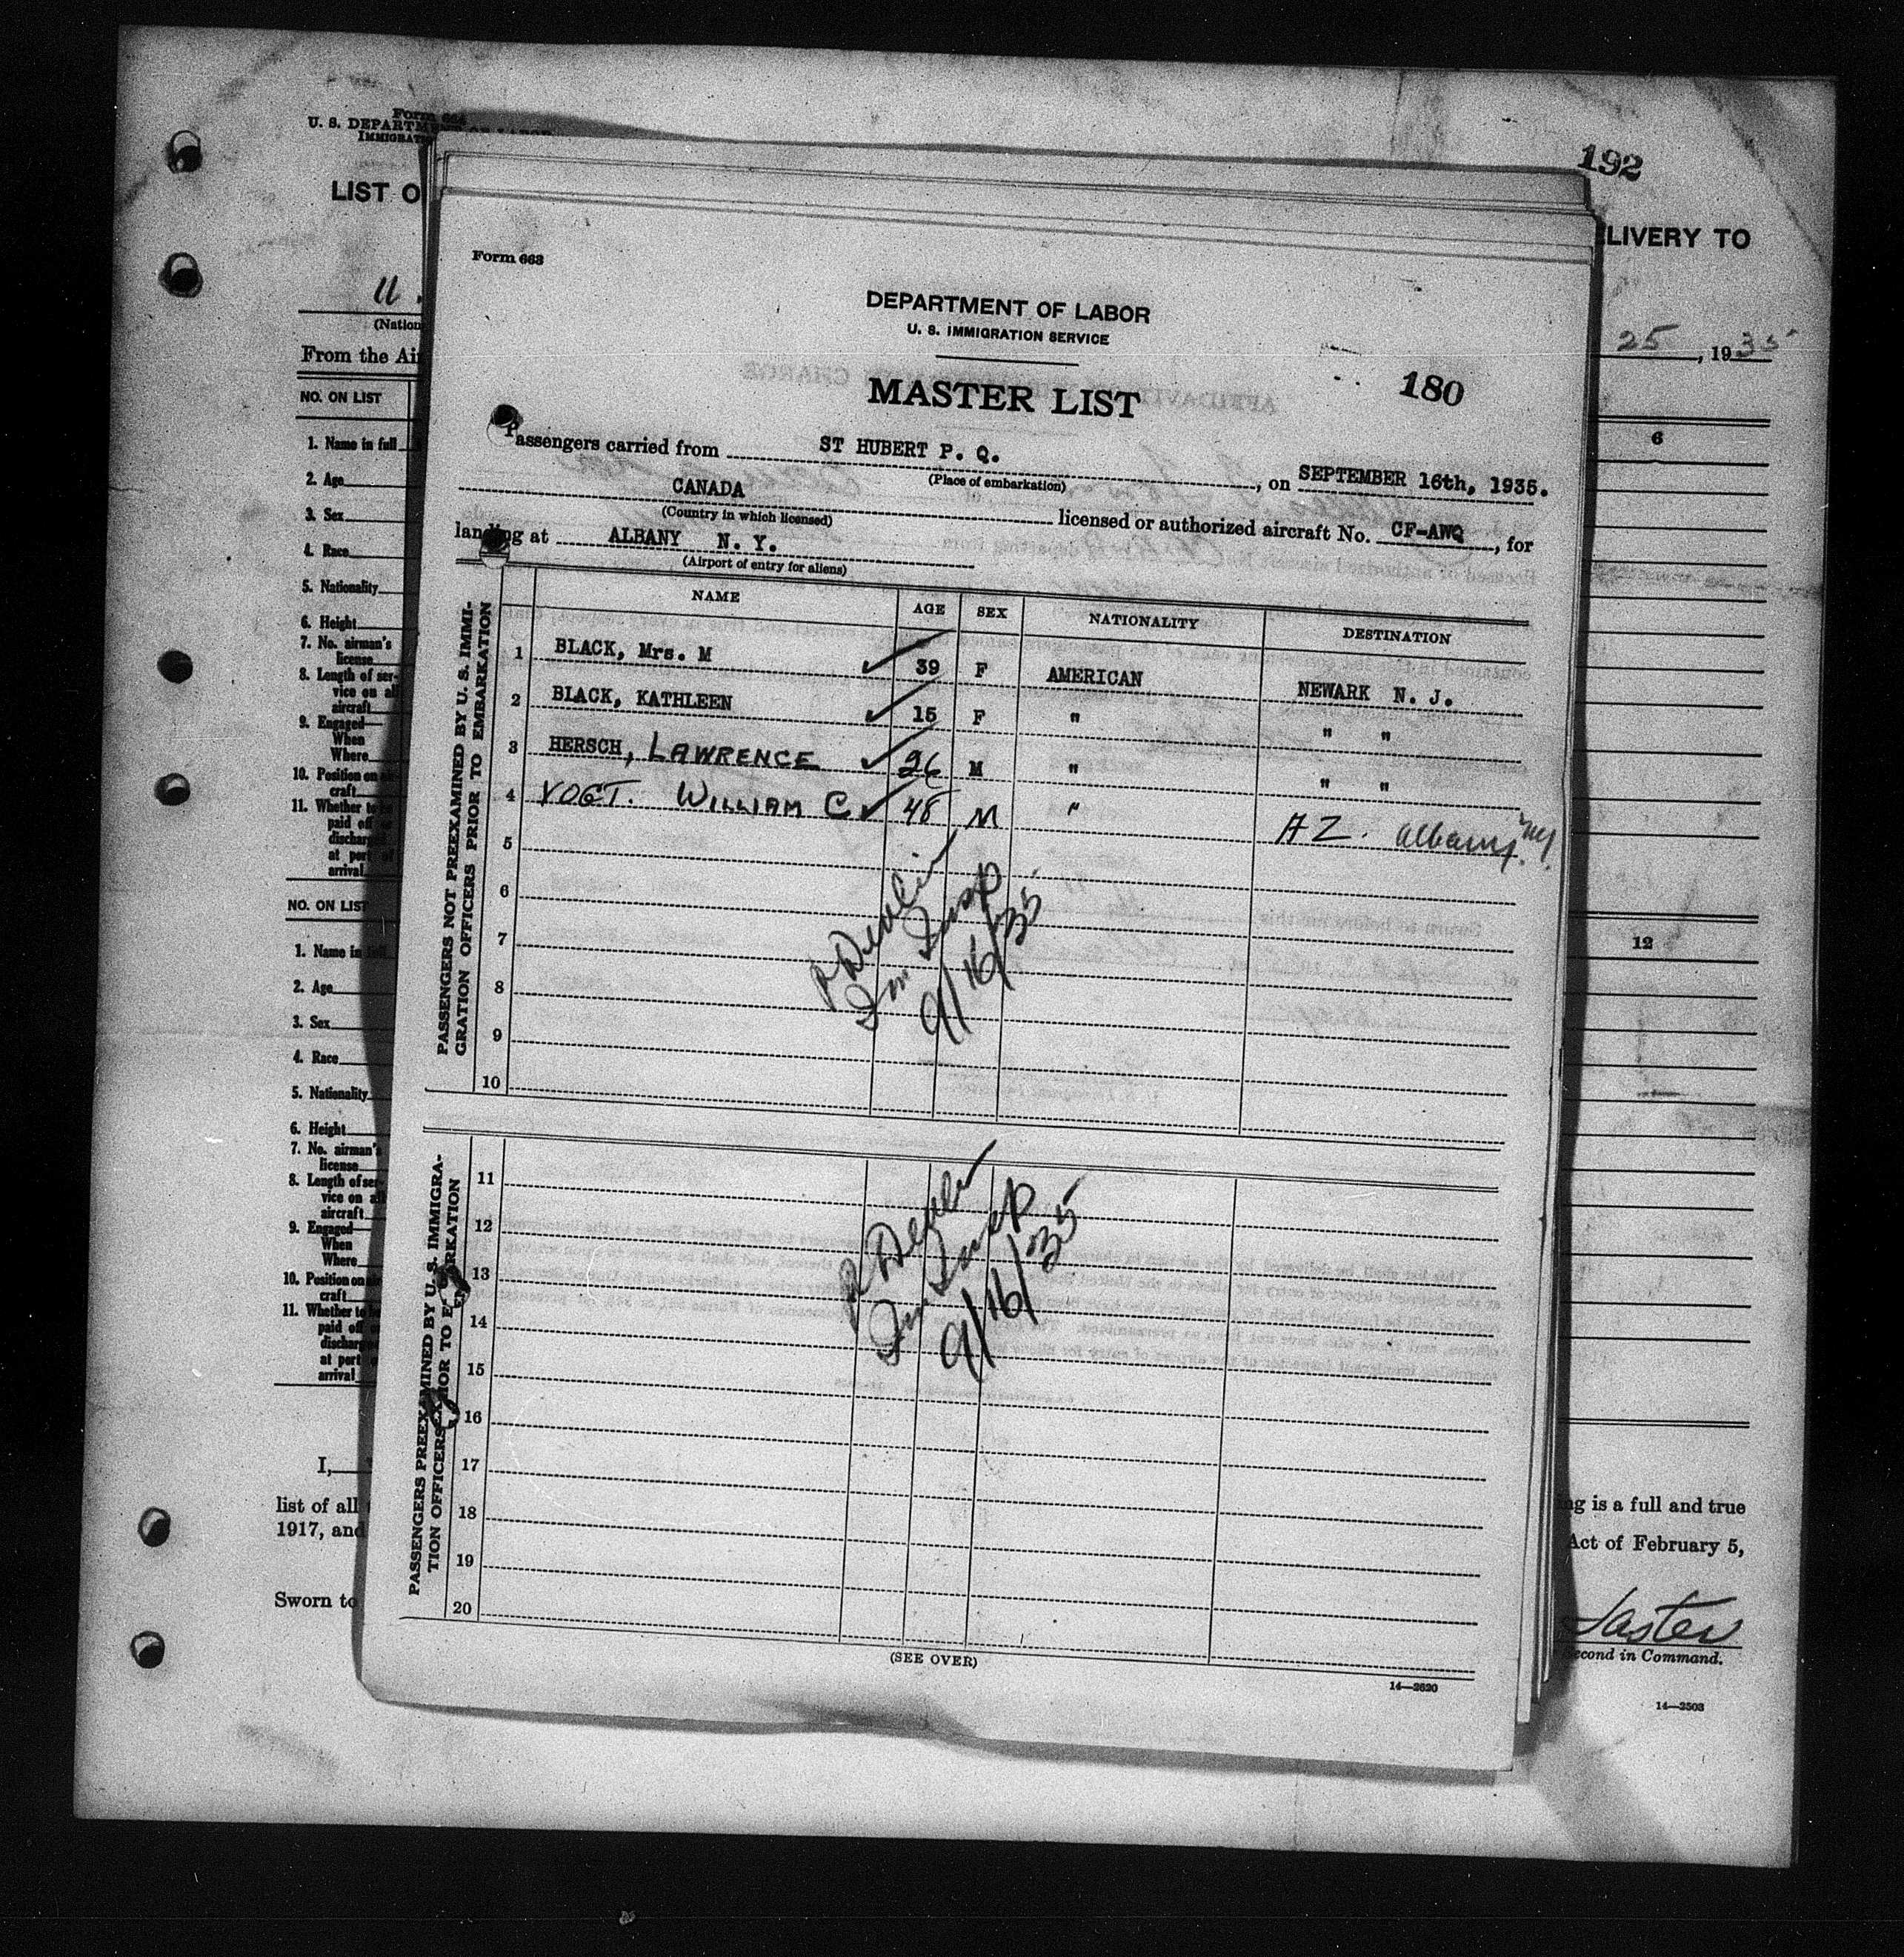 Form 664
U. S. DEPARTMENT OF LABOR
IMMIGRAT
192
LIST O
ELIVERY TO
U.
(Nation
25, 1935
From the Air
NO. ON LIST
6
1. Name in full
2. Age
3. Sex
4. Race
5. Nationality
6. Height
7. No. airman's
license
8. Length of ser-
vice on all
aircraft
9. Engaged—
When
Where
10. Position on air-
craft
11. Whether to be
paid off or
discharged
at port of
arrival
NO. ON LIST
12
1. Name in full
2. Age
3. Sex
4. Race
5. Nationality
6. Height
7. No. airman's
license
8. Length of ser-
vice on all
aircraft
9. Engaged—
When
Where
10. Position on air-
craft
11. Whether to be
paid off or
discharged
at port of
arrival
I,
list of all
ing is a full and true
1917, and
Act of February 5,
Sworn to
Second in Command.
14—2503
Form 663
DEPARTMENT OF LABOR
U. S. IMMIGRATION SERVICE
MASTER LIST
180
Passengers carried from ST HUBERT P. Q., on SEPTEMBER 16th, 1935.
(Place of embarkation)
CANADA licensed or authorized aircraft No. CF-AWQ, for
(Country in which licensed)
landing at ALBANY N. Y.
(Airport of entry for aliens)
NAME AGE SEX NATIONALITY DESTINATION
PASSENGERS NOT PREEXAMINED BY U. S. IMMI-
GRATION OFFICERS PRIOR TO EMBARKATION
1 BLACK, Mrs. M 39 F AMERICAN NEWARK N. J.
2 BLACK, KATHLEEN 15 F " " "
3 HERSCH, LAWRENCE 26 M " " "
4 VOGT. WILLIAM C 48 M " AZ. Albany, NY.
5
6
7
8
9
10
R Devlin
Im Insp
9/16/35
PASSENGERS PREEXAMINED BY U. S. IMMIGRA-
TION OFFICERS PRIOR TO EMBARKATION
11
12
13
14
15
16
17
18
19
20
R Devlin
Im Insp
9/16/35
(SEE OVER)
14—2620